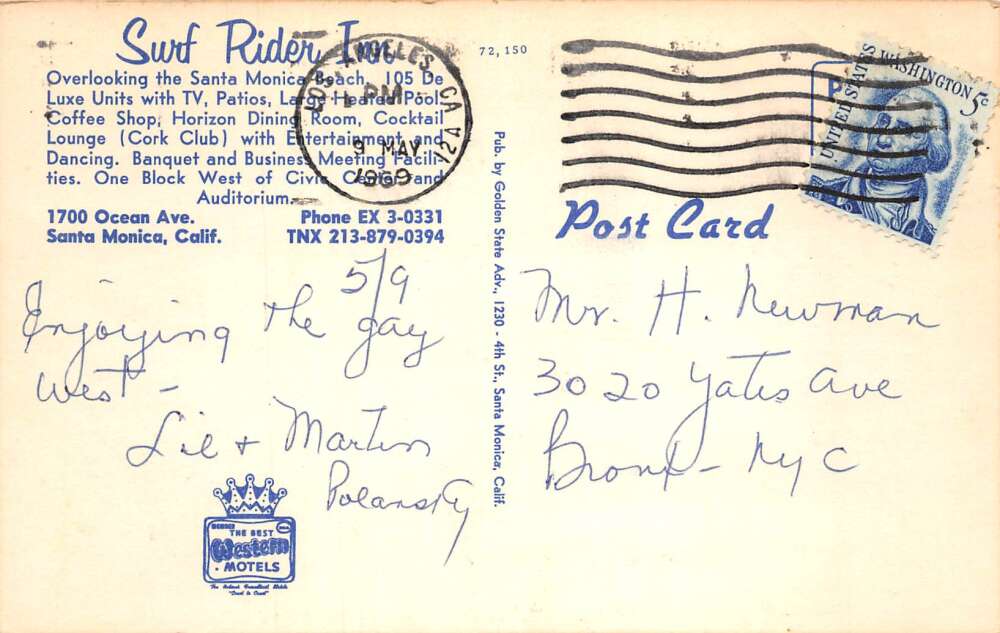 Surf Rider Inn
Overlooking the Santa Monica Beach, 105 De
Luxe Units with TV, Patios, Large Heated Pool,
Coffee Shop, Horizon Dining Room, Cocktail
Lounge (Cork Club) with Entertainment and
Dancing. Banquet and Business Meeting Facili-
ties. One Block West of Civic Center and
Auditorium.
1700 Ocean Ave. Phone EX 3-0331
Santa Monica, Calif. TNX 213-879-0394
5/9
Enjoying the gay
west -
Lil & Martin
Polansky
MEMBER
THE BEST
Western
MOTELS
72,150
Pub. by Golden State Adv., 1230 - 4th St., Santa Monica, Calif.
LOS ANGELES, CA
PM
9 MAY
1969
12A
UNITED STATES
WASHINGTON 5c
Post Card
Mr. H. Newman
3020 Yates Ave
Bronx - NYC